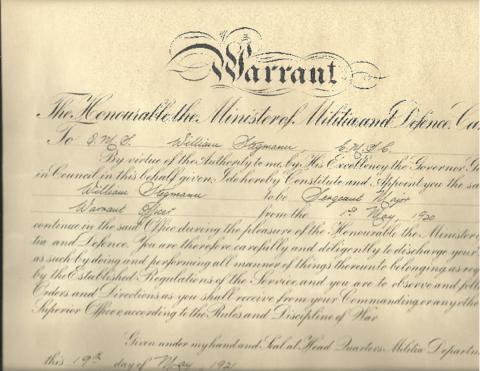 Warrant
The Honourable the Minister of Militia and Defence, Ca
To Q.M.S. William Stegmann, C.M.S.C.
By virtue of the Authority to me by His Excellency the Governor Ge
in Council in this behalf given, I do hereby Constitute and Appoint you the sa
William Stegmann to be Sergeant Major
Warrant Officer from the 1st May, 1920
continue in the said Office during the pleasure of the Honourable the Minister o
tia and Defence. You are therefore carefully and diligently to discharge your
as such by doing and performing all manner of things thereunto belonging as req
by the Established Regulations of the Service and you are to observe and foll
Orders and Directions as you shall receive from your Commanding or any othe
Superior Officer, according to the Rules and Discipline of War
Given under my hand and Seal at Head Quarters, Militia Departm
this 19th day of May, 1921